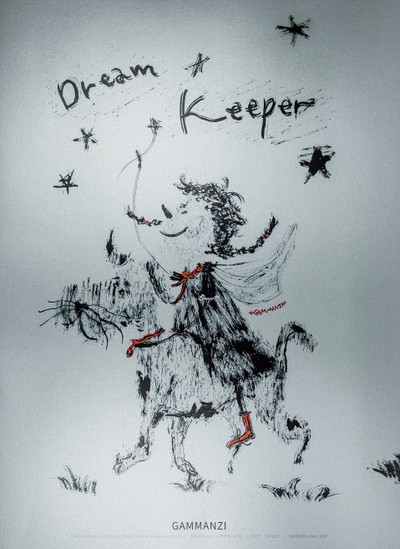 Dream
Keeper
*GAMMANZI*
GAMMANZI